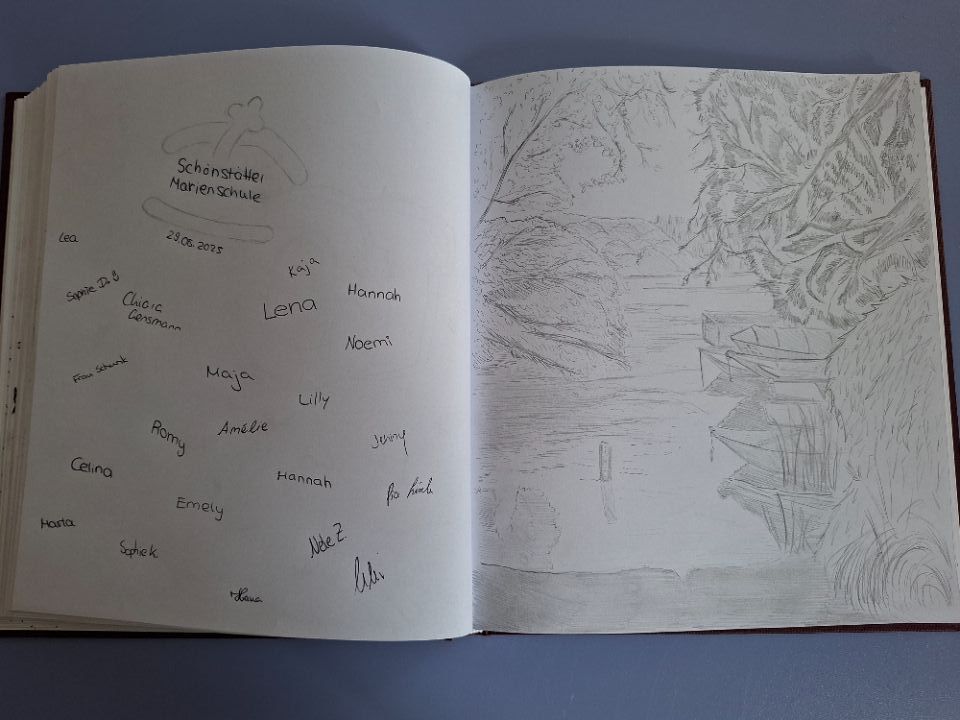 Schönstätter
Marienschule
29.08.2025
Lea
Kaja
Sophie D.
Chiara
Gensmann
Lena
Hannah
Noemi
Frau Schunk
Maja
Lilly
Romy
Amélie
Jenny
Celina
Hannah
Emely
Marta
Sophie K
Nele Z.
Lili